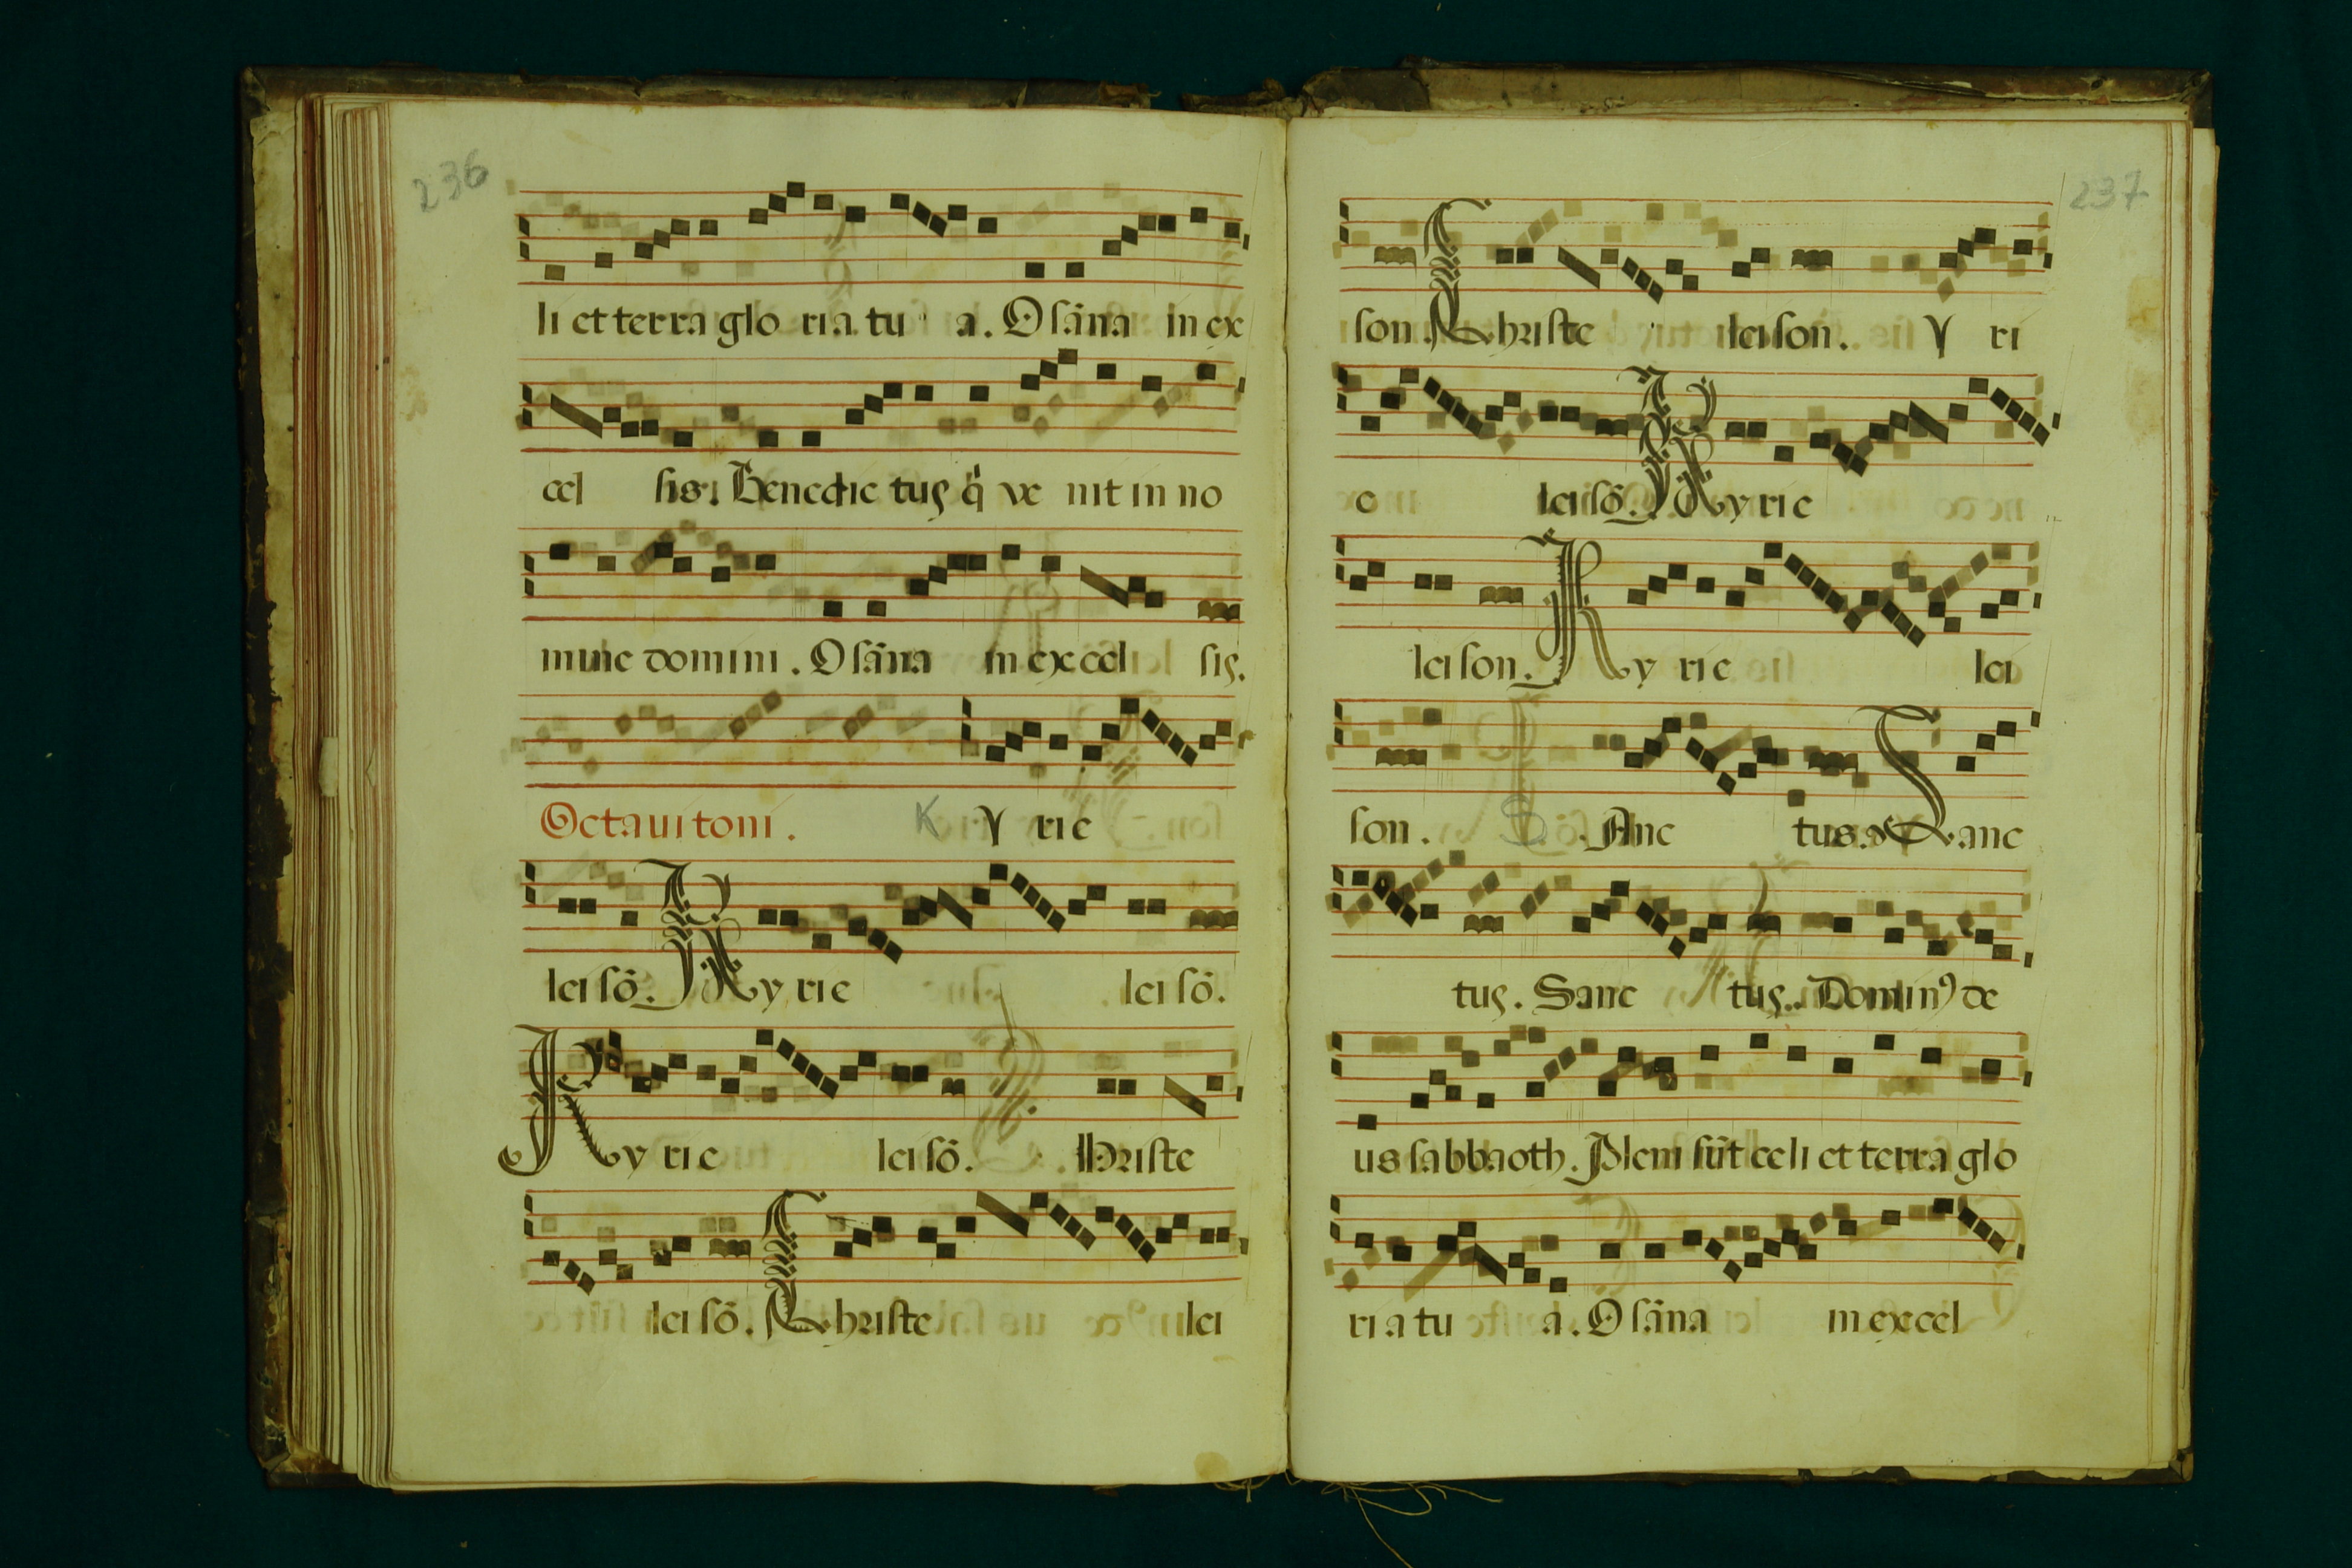 236
li et terra glo ria tu a. Osāna in ex
cel sis. Benedictus q̄ ve nit in no
mine domini. Osāna in excel sis.
Octaui toni. K Y rie
lei sō. Kyrie lei sō.
Kyrie lei sō. hriste
lei sō. Christe lei
237
son. Christe leison. Y ri
e lei sō. Kyrie
lei son. Ky rie lei
son. S Anc tus. Sanc
tus. Sanc tus. Dominꝰ de
us sabbaoth. Pleni sūt celi et terra glo
ria tu a. Osāna in excel